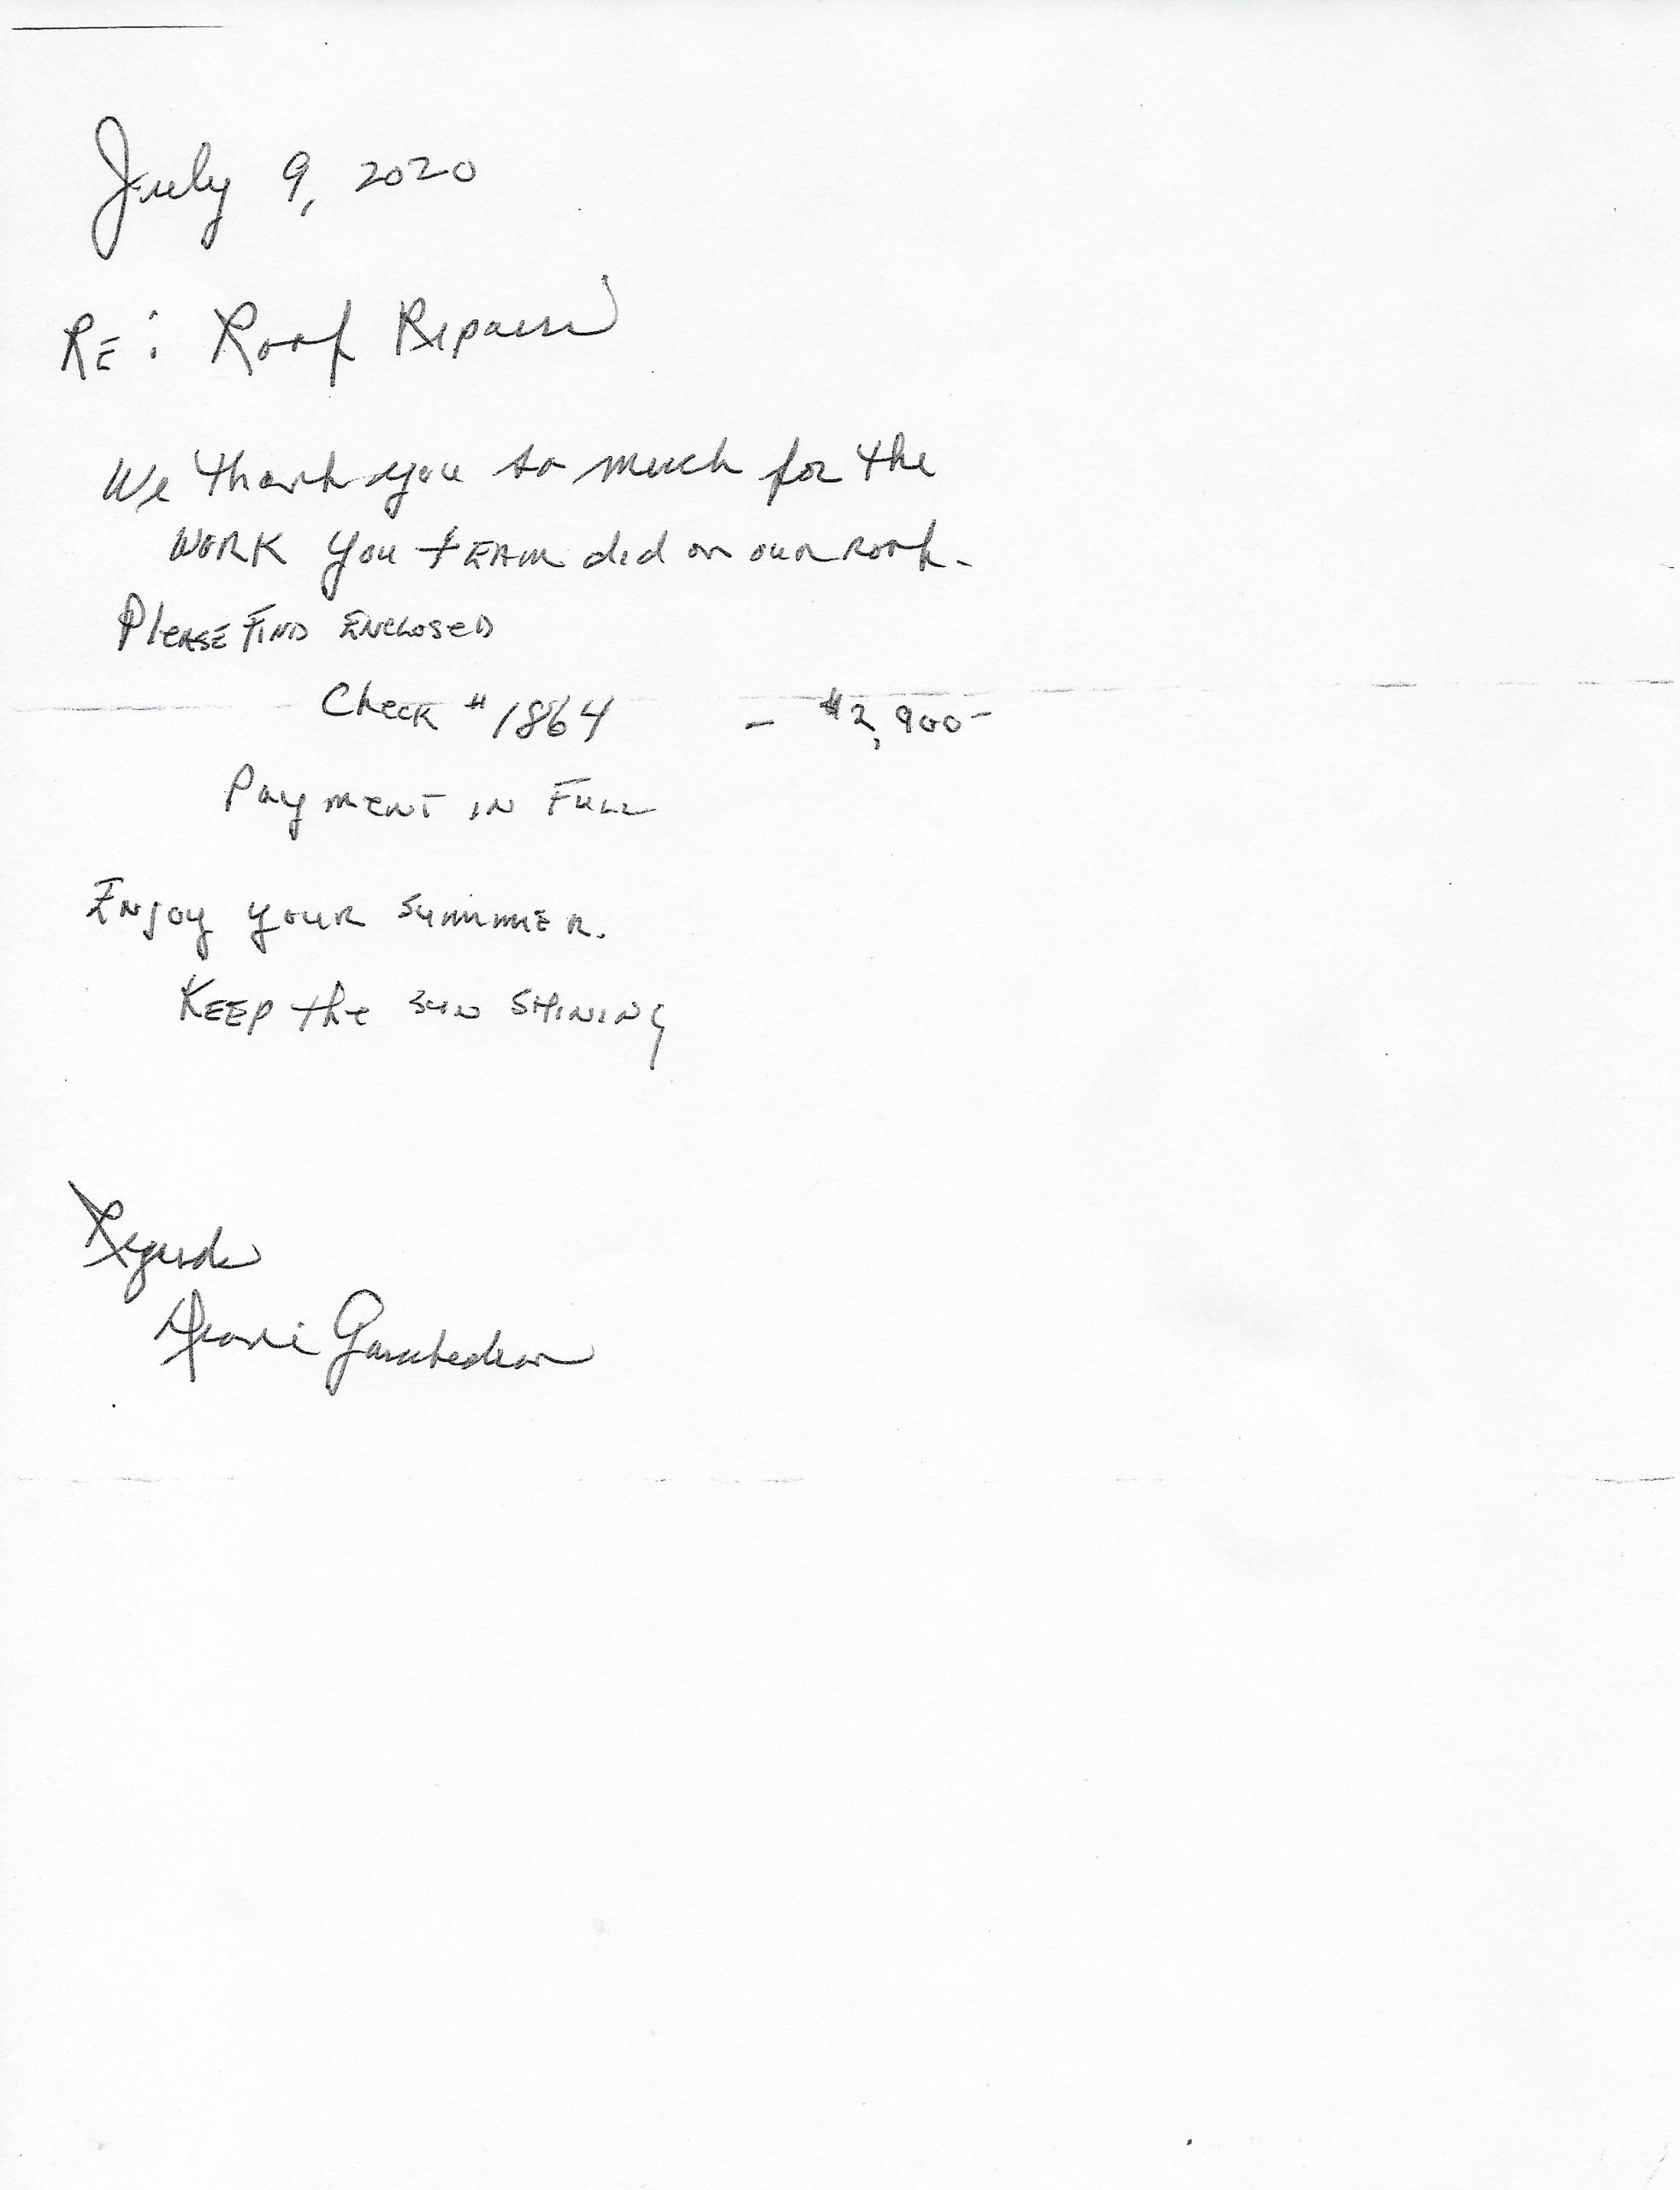 July 9, 2020
RE: Roof Repairs
We thank you so much for the
WORK you tEAM did on our roof.
PleASE FIND ENCLOSED
Check #1864 - $2,900-
Payment IN FULL
ENJOY YOUR SUMMER.
KEEP the SUN SHINING
Regards